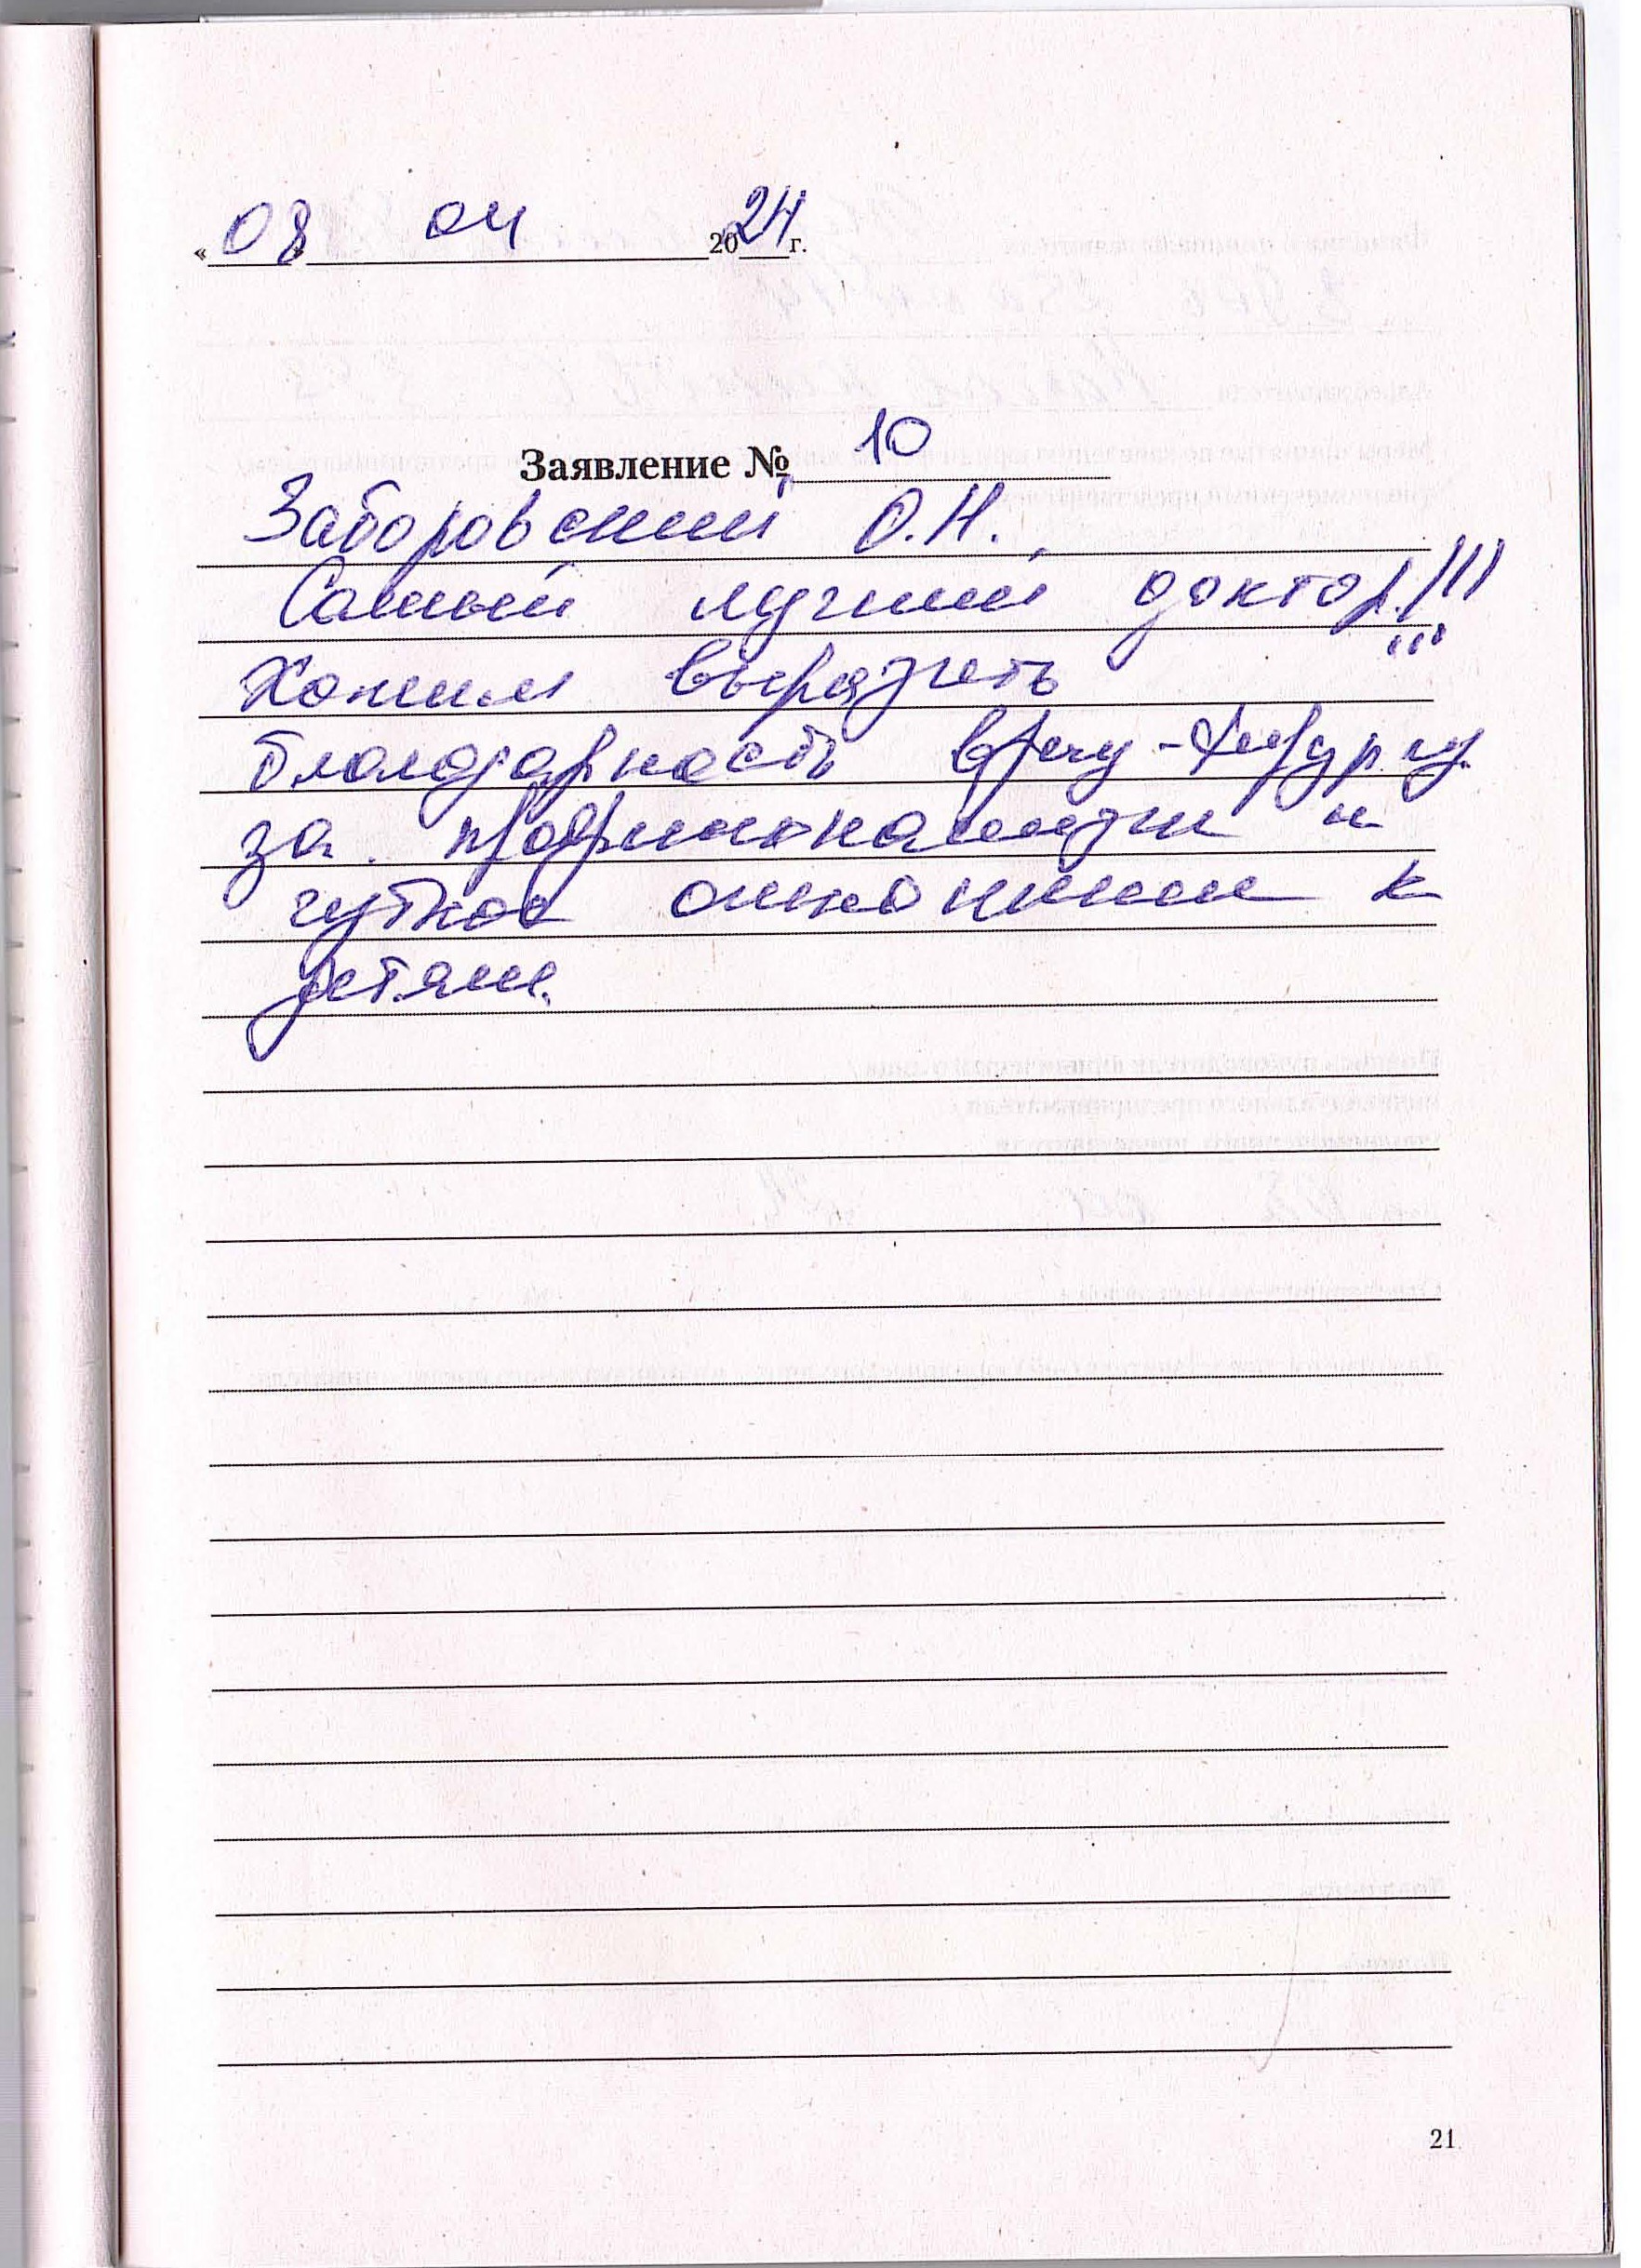 «08 04 2024г.
Заявление № 10
Заборовский О.Н.
Самый лучший доктор!!!
Хотим выразить
благодарность врачу-хирургу
за профессионализм и
чуткое отношение к
детям.
21